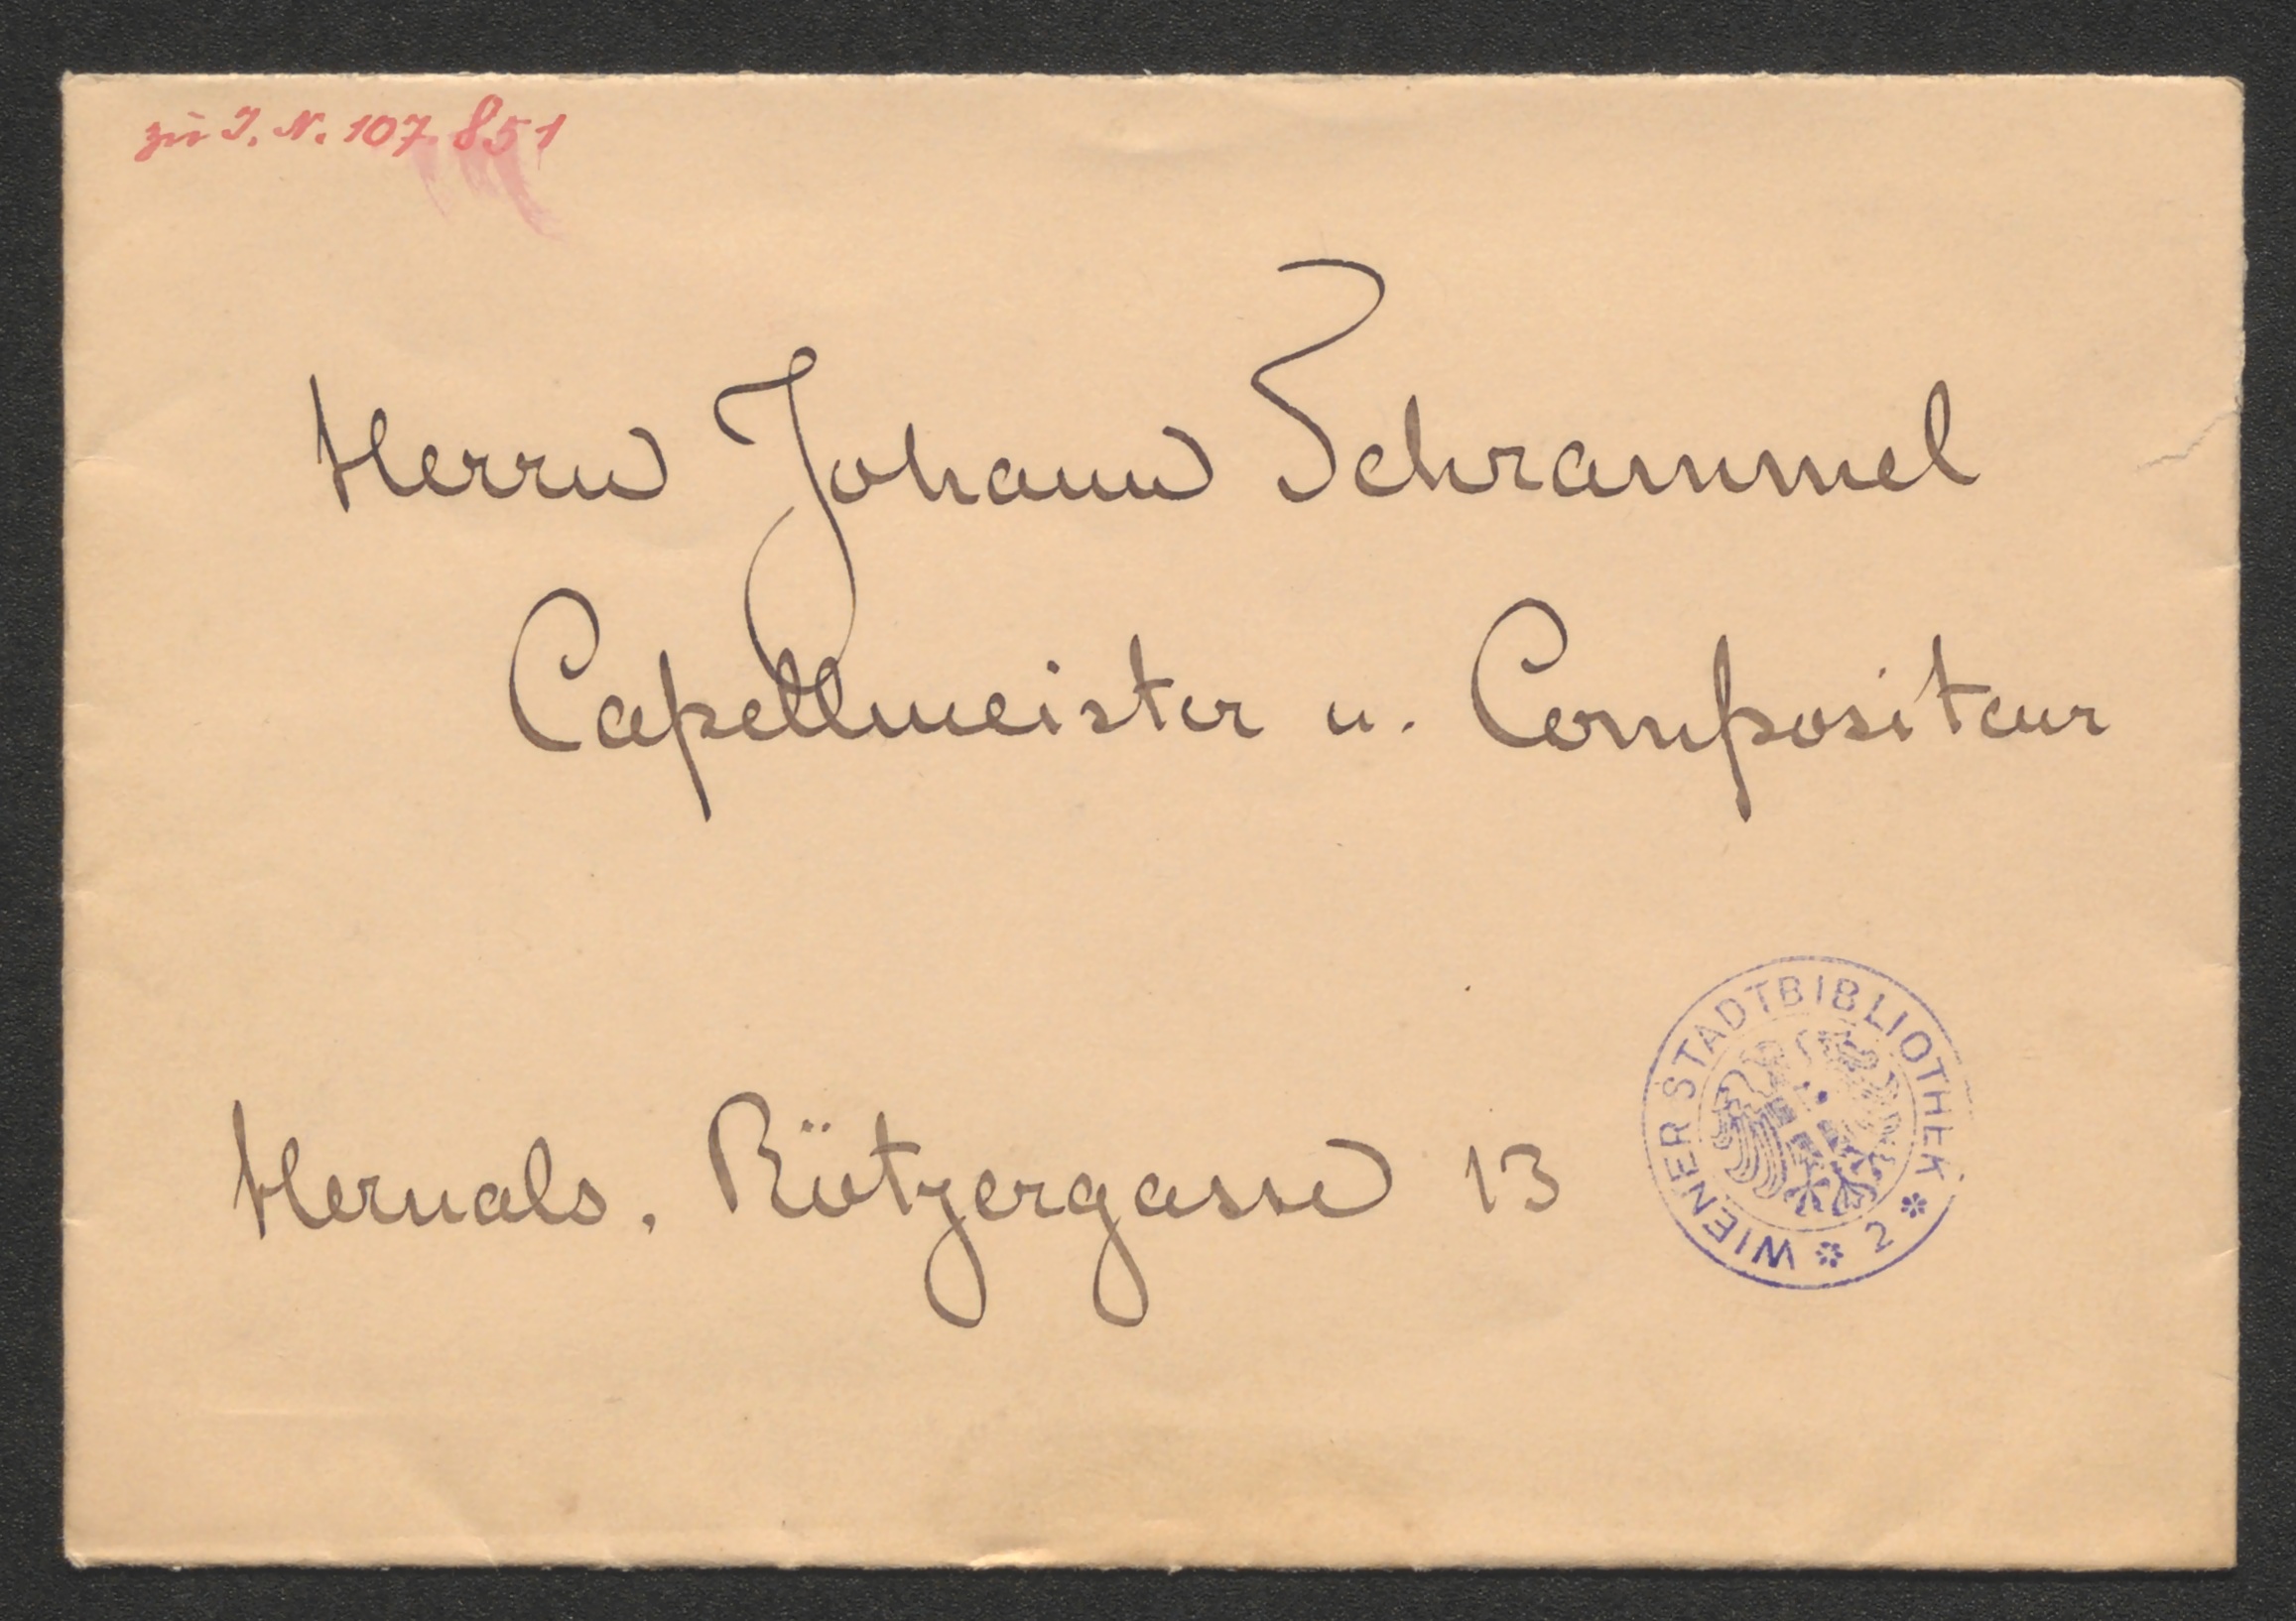 zu I. N. 107.851
Herrn Johann Schrammel
Capellmeister u. Compositeur
Hernals. Rötzergasse 13
WIENER STADTBIBLIOTHEK * 2 *